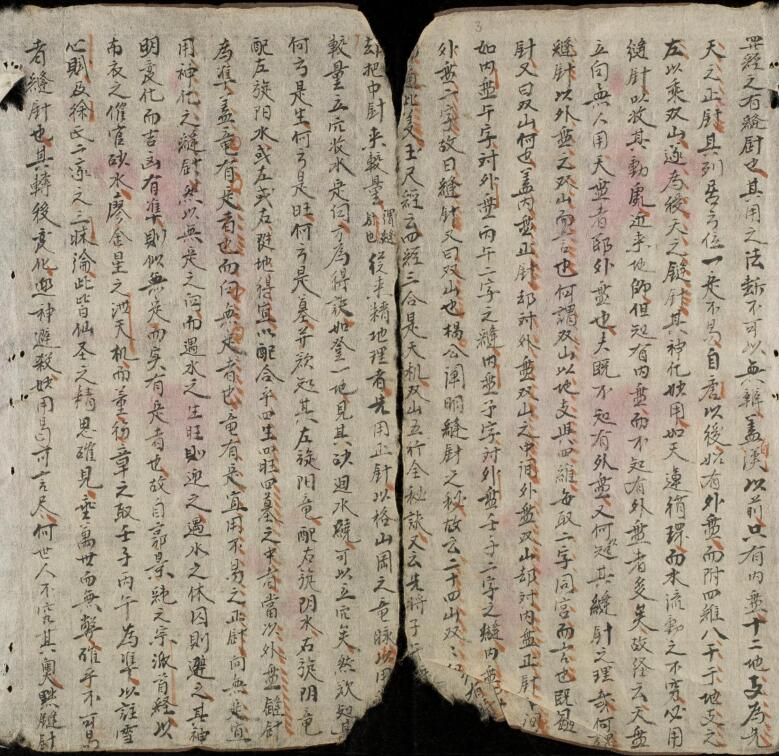 羅經之有縫針也其用之法斷不可以無辨盖漢以前只有内盤十二地支為先
天之正針其列居方位一定不易自唐以後始有外盤而附四維八干于地支之
左以乘双山遂為後天之縫針其神化妙用如天運循環而水流動之不窮必用
縫針以收其動氣近来地師但知有内盤而不知有外盤者多矣故經云天盤
立向無人用天盤者即外盤也夫既不知有外盤又何知其縫針之理哉何謂
縫針以外盤之双山而言也何謂双山以地支與四維每取二字同宮而言也既曰
針又曰双山何也盖内盤正針却对外盤双山之中間外盤双山却对内盤正針
如内盤午字对外盤丙午二字之縫内盤子字对外盤壬子二字之縫内盤
外盤二字故曰縫針又曰双山也楊公闡明縫針之秘故云二十四山双双
道此是玉尺經云四經三合是天机双山五行全秘訣又云先將子
却把中針来較量謂縫針也從来精地理者先用正針以格山岡之竜脉以用
較量立穴收水是何方為得訣如登一地見其砂迴水繞可以立穴矣然欲知其
何方是生何方是旺何方是墓并欲知其左旋阳竜配右旋阴水右旋阴竜
配左旋阳水或左或右陡地得宜以配合乎四生四旺四墓之中者當以外盤縫針
為準盖竜有定者也而向無定者也竜有定宜用不易之正針向無定宜
用神化之縫針然以無定之向而遇水之生旺則迎之遇水之休囚則避之其神
明变化而吉凶有準則似無定而实有定者也故自郭景純之宗派首經以
布衣之催官砂水廖金星之泄天机而董衍章之取壬子丙午為準以註雪
心賦及徐氏二家之三昧論此皆仙圣之精思確見垂萬世而無弊確乎不可易
者縫針也其轉後变化迎神避殺妙用曷可言尽何世人不究其奥默縫針